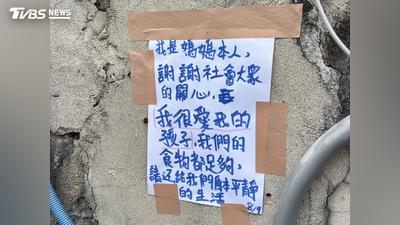 TVBS NEWS
我是媽媽本人，
謝謝社會大眾
的關心，
我很愛我的
孩子，我們的
食物都足夠，
請还給我們平靜
的生活
8/9